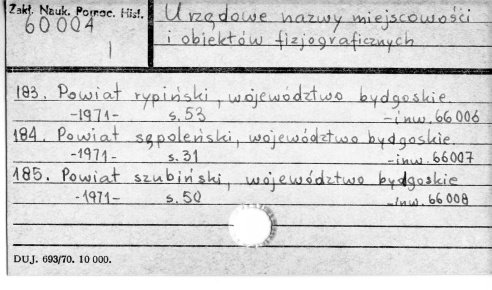 Zakł. Nauk. Pomoc. Hist.
60004
1
Urzędowe nazwy miejscowości
i obiektów fizjograficznych
183. Powiat rypiński, województwo bydgoskie.
-1971- s.53 -inw.66006
184. Powiat sępoleński, województwo bydgoskie.
-1971- s.31 -inw.66007
185. Powiat szubiński, województwo bydgoskie
-1971- s.50 -inw.66008
DUJ. 693/70. 10 000.